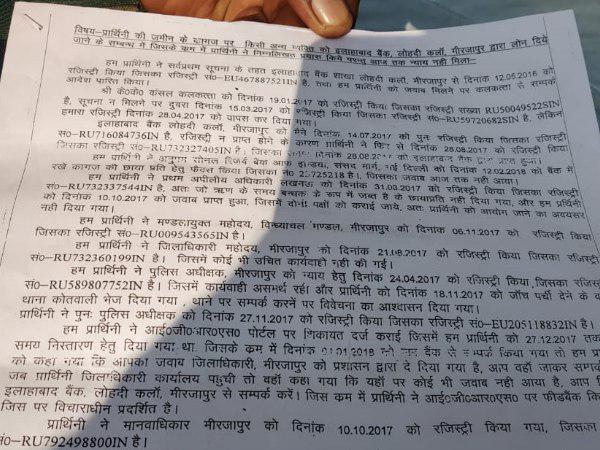 विषय–प्रार्थिनी की जमीन के कागज पर किसी अन्य व्यक्ति को इलाहाबाद बैंक, लोहदी कलाँ, मीरजापुर द्वारा लोन दिये
जाने के सम्बन्ध में जिसके क्रम में प्रार्थिनी ने निम्नलिखित प्रयास किये परन्तु आज तक न्याय नही मिला–
हम प्रार्थिनी ने सर्वप्रथम सूचना के तहत इलाहाबाद बैंक शाखा लोहदी कलाँ, मीरजापुर से दिनांक 12.05.2016 को
रजिस्ट्री किया जिसका रजिस्ट्री सं०–EU467887521IN है, तथा हम प्रार्थिनी को जवाब मिलने पर कलकत्ता से सम्पर्क
आदेश पारित किया।
श्री के०के० कंसल कलकत्ता को दिनांक 19.01.2017 को रजिस्ट्री किया जिसका रजिस्ट्री संख्या RU50049522SIN
है, सूचना न मिलने पर दुबारा दिनांक 15.03.2017 को रजिस्ट्री किया जिसका रजिस्ट्री सं०–RU59720682SIN है, लेकिन
हमारा रजिस्ट्री दिनांक 28.04.2017 को वापस कर दिया गया।
इलाहाबाद बैंक, लोहदी कलाँ, मीरजापुर को मैने दिनांक 14.07.2017 को पुनः रजिस्ट्री किया जिसका रजिस्ट्री
सं०–RU716084736IN है, रजिस्ट्री न प्राप्त होने के कारण प्रार्थिनी ने फिर से दिनांक 28.08.2017 को रजिस्ट्री किया
जिसका रजिस्ट्री सं०–RU732327405IN है। जिसका दिनांक 28.08. को इलाहाबाद बैंक द्वारा प्राप्त हुआ।
हम प्रार्थिनी ने रिजर्व बैंक आफ इन्डिया, संसद मार्ग, नई दिल्ली को दिनांक 12.02.2018 को बैंक में
रखे कागज की छाया प्रति हेतु फैक्स किया जिसका नं० 25725218 है। जिसका जवाब आज तक नही आया।
हम प्रार्थिनी ने प्रथम अपीलीय अधिकारी लखनऊ को दिनांक 31.08.2017 को रजिस्ट्री किया जिसका रजिस्ट्री
सं०–RU732337544IN है, अतः जो ऋण के समय बन्धक के रूप में जब्त है के छायाप्रति नही दिया गया, और हम प्रार्थिनी
को दिनांक 10.10.2017 को जवाब प्राप्त हुआ, जिसमें दोनो पक्षों को कराई जाये, अतः प्रार्थिनी को आयोग जाने का अवसर
नही दिया गया।
हम प्रार्थिनी ने मण्डलायुक्त महोदय, विन्ध्याचल मण्डल, मीरजापुर को दिनांक 06.11.2017 को रजिस्ट्री किया
जिसका रजिस्ट्री सं०–RU009543565IN है।
हम प्रार्थिनी ने जिलाधिकारी महोदय, मीरजापुर को दिनांक 21.08.2017 को रजिस्ट्री किया जिसका रजिस्ट्री
सं०–RU732360199IN है। जिसमें कोई भी उचित कार्यवाही नही की गई।
हम प्रार्थिनी ने पुलिस अधीक्षक, मीरजापुर को न्याय हेतु दिनांक 24.04.2017 को रजिस्ट्री किया,जिसका रजिस्
सं०–RU589807752IN है। जिसमें कार्यवाही असमर्थ रही। और प्रार्थिनी को दिनांक 18.11.2017 को जाँच पर्ची देने के व
थाना कोतवाली भेज दिया गया, थाने पर सम्पर्क करनें पर विवेचना का आश्वासन दिया गया।
प्रार्थिनी ने पुनः पुलिस अधीक्षक को दिनांक 27.11.2017 को रजिस्ट्री किया जिसका रजिस्ट्री सं०–EU205118832IN है।
हम प्रार्थिनी ने आई०जी०आर०एस० पोर्टल पर शिकायत दर्ज कराई जिसमें हम प्रार्थिनी को 27.12.2017 तक
समय निस्तारण हेतु दिया गया था, जिसके क्रम में दिनांक 01.01.2018 को जब बैंक से सम्पर्क किया गया तो हम प्र
को कहा गया कि आपका जवाब जिलाधिकारी, मीरजापुर को प्रशासन द्वारा दे दिया गया है, आप वहाँ जाकर सम्पर्क
जब प्रार्थिनी जिलाधिकारी कार्यालय पहुची तो वहाँ कहा गया कि यहाँ पर कोई भी जवाब नही आया है, आप
इलाहाबाद बैंक, लोहदी कलाँ, मीरजापुर से सम्पर्क करें। जिस क्रम में प्रार्थिनी ने आई०जी०आर०एस० पर फीडबैक कि
जिस पर विचाराधीन प्रदर्शित है।
प्रार्थिनी ने मानवाधिकार मीरजापुर को दिनांक 10.10.2017 को रजिस्ट्री किया गया, जिसक
सं०–RU792498800IN है।